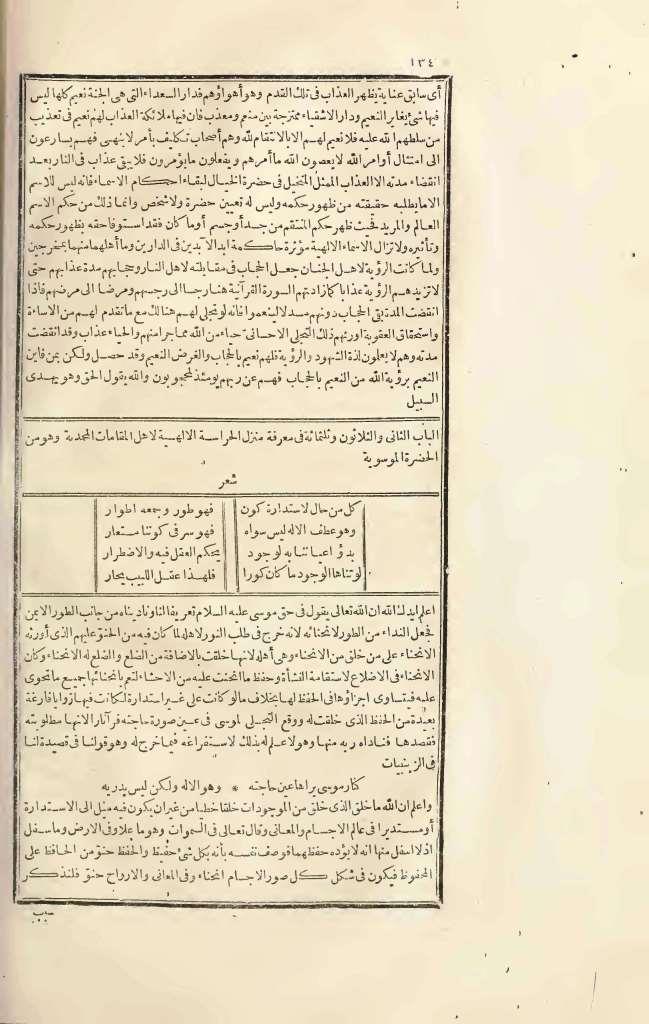 ١٣٤
أى سابق عناية يظهر العذاب فى تلك القدم وهو أهواؤهم فدار السعداء التى هى الجنة نعيم كلها ليس
فيها شئ يغاير النعيم ودار الاشقياء ممتزجة بين منعم ومعذب فان فيها ملائكة العذاب لهم نعيم فى تعذيب
من سلطهم الله عليه فلا نعيم لهم الا بالانتقام لله وهم أصحاب تكليف بأمر لا بنهى فهم يسارعون
الى امتثال أوامر الله لا يعصون الله ما أمرهم ويفعلون ما يؤمرون فلا يبقى عذاب فى النار بعد
انقضاء مدته الا العذاب الممثل المتخيل فى حضرة الخيال لبقاء احكام الاسماء فانه ليس للاسم
الا ما يطلبه حقيقته من ظهور حكمه وليس له تعيين حضرة ولا شخص وانما ذلك من حكم الاسم
العالم والمريد فحيث ظهر حكم المنتقم من جسد أو جسم أو ما كان فقد استوفى حقه بظهور حكمه
وتأثيره ولا تزال الاسماء الالهية مؤثرة حاكمة ابد الآبدين فى الدارين وما أهلهما منهما بمخرجين
ولما كانت الرؤية لاهل الجنان جعل الحجاب فى مقابلته لاهل النار وحجابهم مدة عذابهم حتى
لا تزيدهم الرؤية عذابا كما زادتهم السورة القرآنية هنا رجسا الى رجسهم ومرضا الى مرضهم فاذا
انقضت المدة بقى الحجاب دونهم مسدلا لينعموا فانه لو تجلى لهم هنالك مع ما تقدم لهم من الاساءة
واستحقاق العقوبة اورثهم ذلك التجلى الاحسانى حياء من الله مما جرا منهم والحياء عذاب وقد انقضت
مدته وهم لا يعلمون لذة الشهود والرؤية فلهم نعيم بالحجاب والغرض النعيم وقد حصل ولكن بمن فاين
النعيم برؤية الله من النعيم بالحجاب فهم عن ربهم يومئذ لمحجوبون والله يقول الحق وهو يهدى
السبيل
الباب الثانى والثلاثون وثلثمائة فى معرفة منزل الحراسة الالهية لاهل المقامات المحمدية وهو من
الحضرة الموسوية
شعر
كل من حال لاستدارة كون فهو طور وجمعه اطوار
وهو عطف الاله ليس سواه فهو سر فى كوننا مستعار
بدؤ اعياننا به لوجود يحكم العقل فيه والاضطرار
لو تناها الوجود ما كان كورا فلهذا عقل اللبيب يحار
اعلم ايدك الله ان الله تعالى يقول فى حق موسى عليه السلام تعريفا لنا وناديناه من جانب الطور الايمن
فجعل النداء من الطور لانحنائه لانه خرج فى طلب النور لاهله لما كان فيه من الحنو عليهم الذى أورثه
الانحناء على من خلق من الانحناء وهى أهله لانها خلقت بالاضافة من الضلع والضلع له الانحناء وكان
الانحناء فى الاضلاع لاستقامة النشأة وحفظ ما انحنت عليه من الاحشاء لتعم بانحنائها جميع ما تحوى
عليه فيتساوى اجزاؤها فى الحفظ لها بخلاف ما لو كانت على غير استدارة لكانت فيها زوايا فارغة
بعيدة من الحفظ الذى خلقت له ووقع التجلى لموسى فى عين صورة حاجته فرآ نارا لانها مطلوبته
فقصدها فناداه ربه منها وهو لا علم له بذلك لاستفراغه فيما خرج له وهو قولنا فى قصيدة لنا
فى الزينبيات
كنار موسى يراها عين حاجته * وهو الاله ولكن ليس يدريه
واعلم ان الله ما خلق الذى خلق من الموجودات خلقا خطيا من غير ان يكون فيه ميل الى الاستدارة
أو مستديرا فى عالم الاجسام والمعانى وقال تعالى فى السموات وهو ما علا وفى الارض وما سفل
اذ لا اسفل منها انه لا يؤده حفظهما فوصف نفسه بأنه بكل شئ حفيظ والحفظ حنو من الحافظ على
المحفوظ فيكون فى شكل كل صور الاجسام انحناء وفى المعانى والارواح حنو فلنذكر
سبب